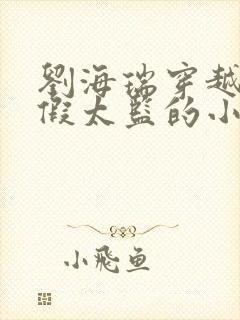 劉海瑞穿越
假太監的小
小飛魚